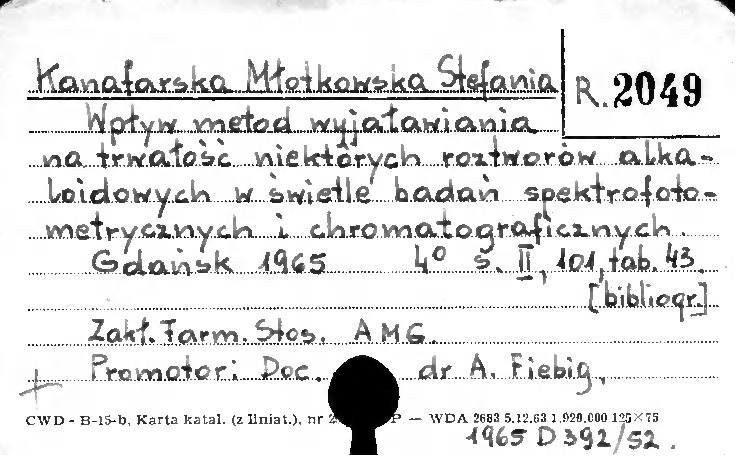 Kanafarska Młotkowska Stefania
R. 2049
Wpływ metod wyjaławiania
na trwałość niektórych roztworów alka-
loidowych w świetle badań spektrofoto-
metrycznych i chromatograficznych.
Gdańsk 1965 4° s. II, 101, tab. 43.
[bibliogr.]
Zakł. Farm. Stos. AMG.
Promotor: Doc. dr A. Fiebig,
CWD - B-15-b, Karta katal. (z liniat.), nr P — WDA 2683 5.12.63 1.920.000 125×75
1965 D 392/52.